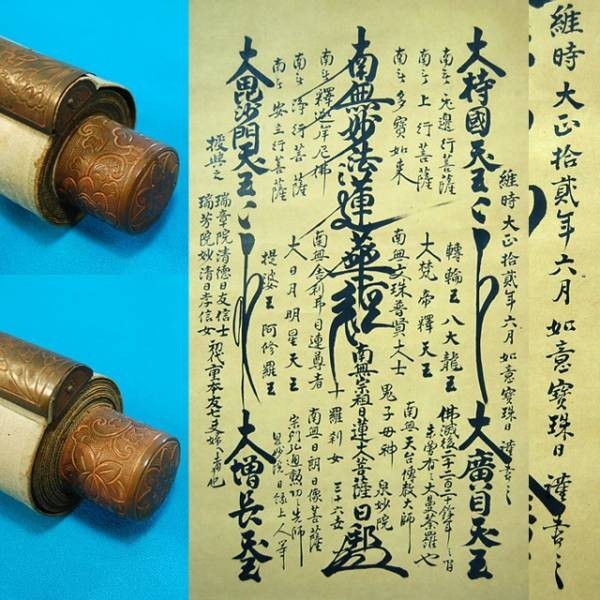 大持國天王
南無無邊行菩薩
南無上行菩薩
南無多寶如来
南無妙法蓮華經
南無釋迦牟尼佛
南無淨行菩薩
南無安立行菩薩
大毘沙門天王
授與之
維時大正拾貳年六月如意寶珠日 謹書之
轉輪王 八大龍王
大梵帝釋天王
南無文珠普賢大士
南無舎利弗目連尊者
大日月明星天王
提婆王 阿修羅王
瑞章院清德日友信士
瑞芳院妙清日孝信女
大廣目天王
佛滅後二千二百二十餘年之間
未曾有之大曼荼羅也
南無天台傳教大師
鬼子母神
泉妙院
南無宗祖日蓮大菩薩
十羅刹女
南無日朗日像菩薩
大增長天王
維時大正拾貳年六月如意寶珠日 謹書之